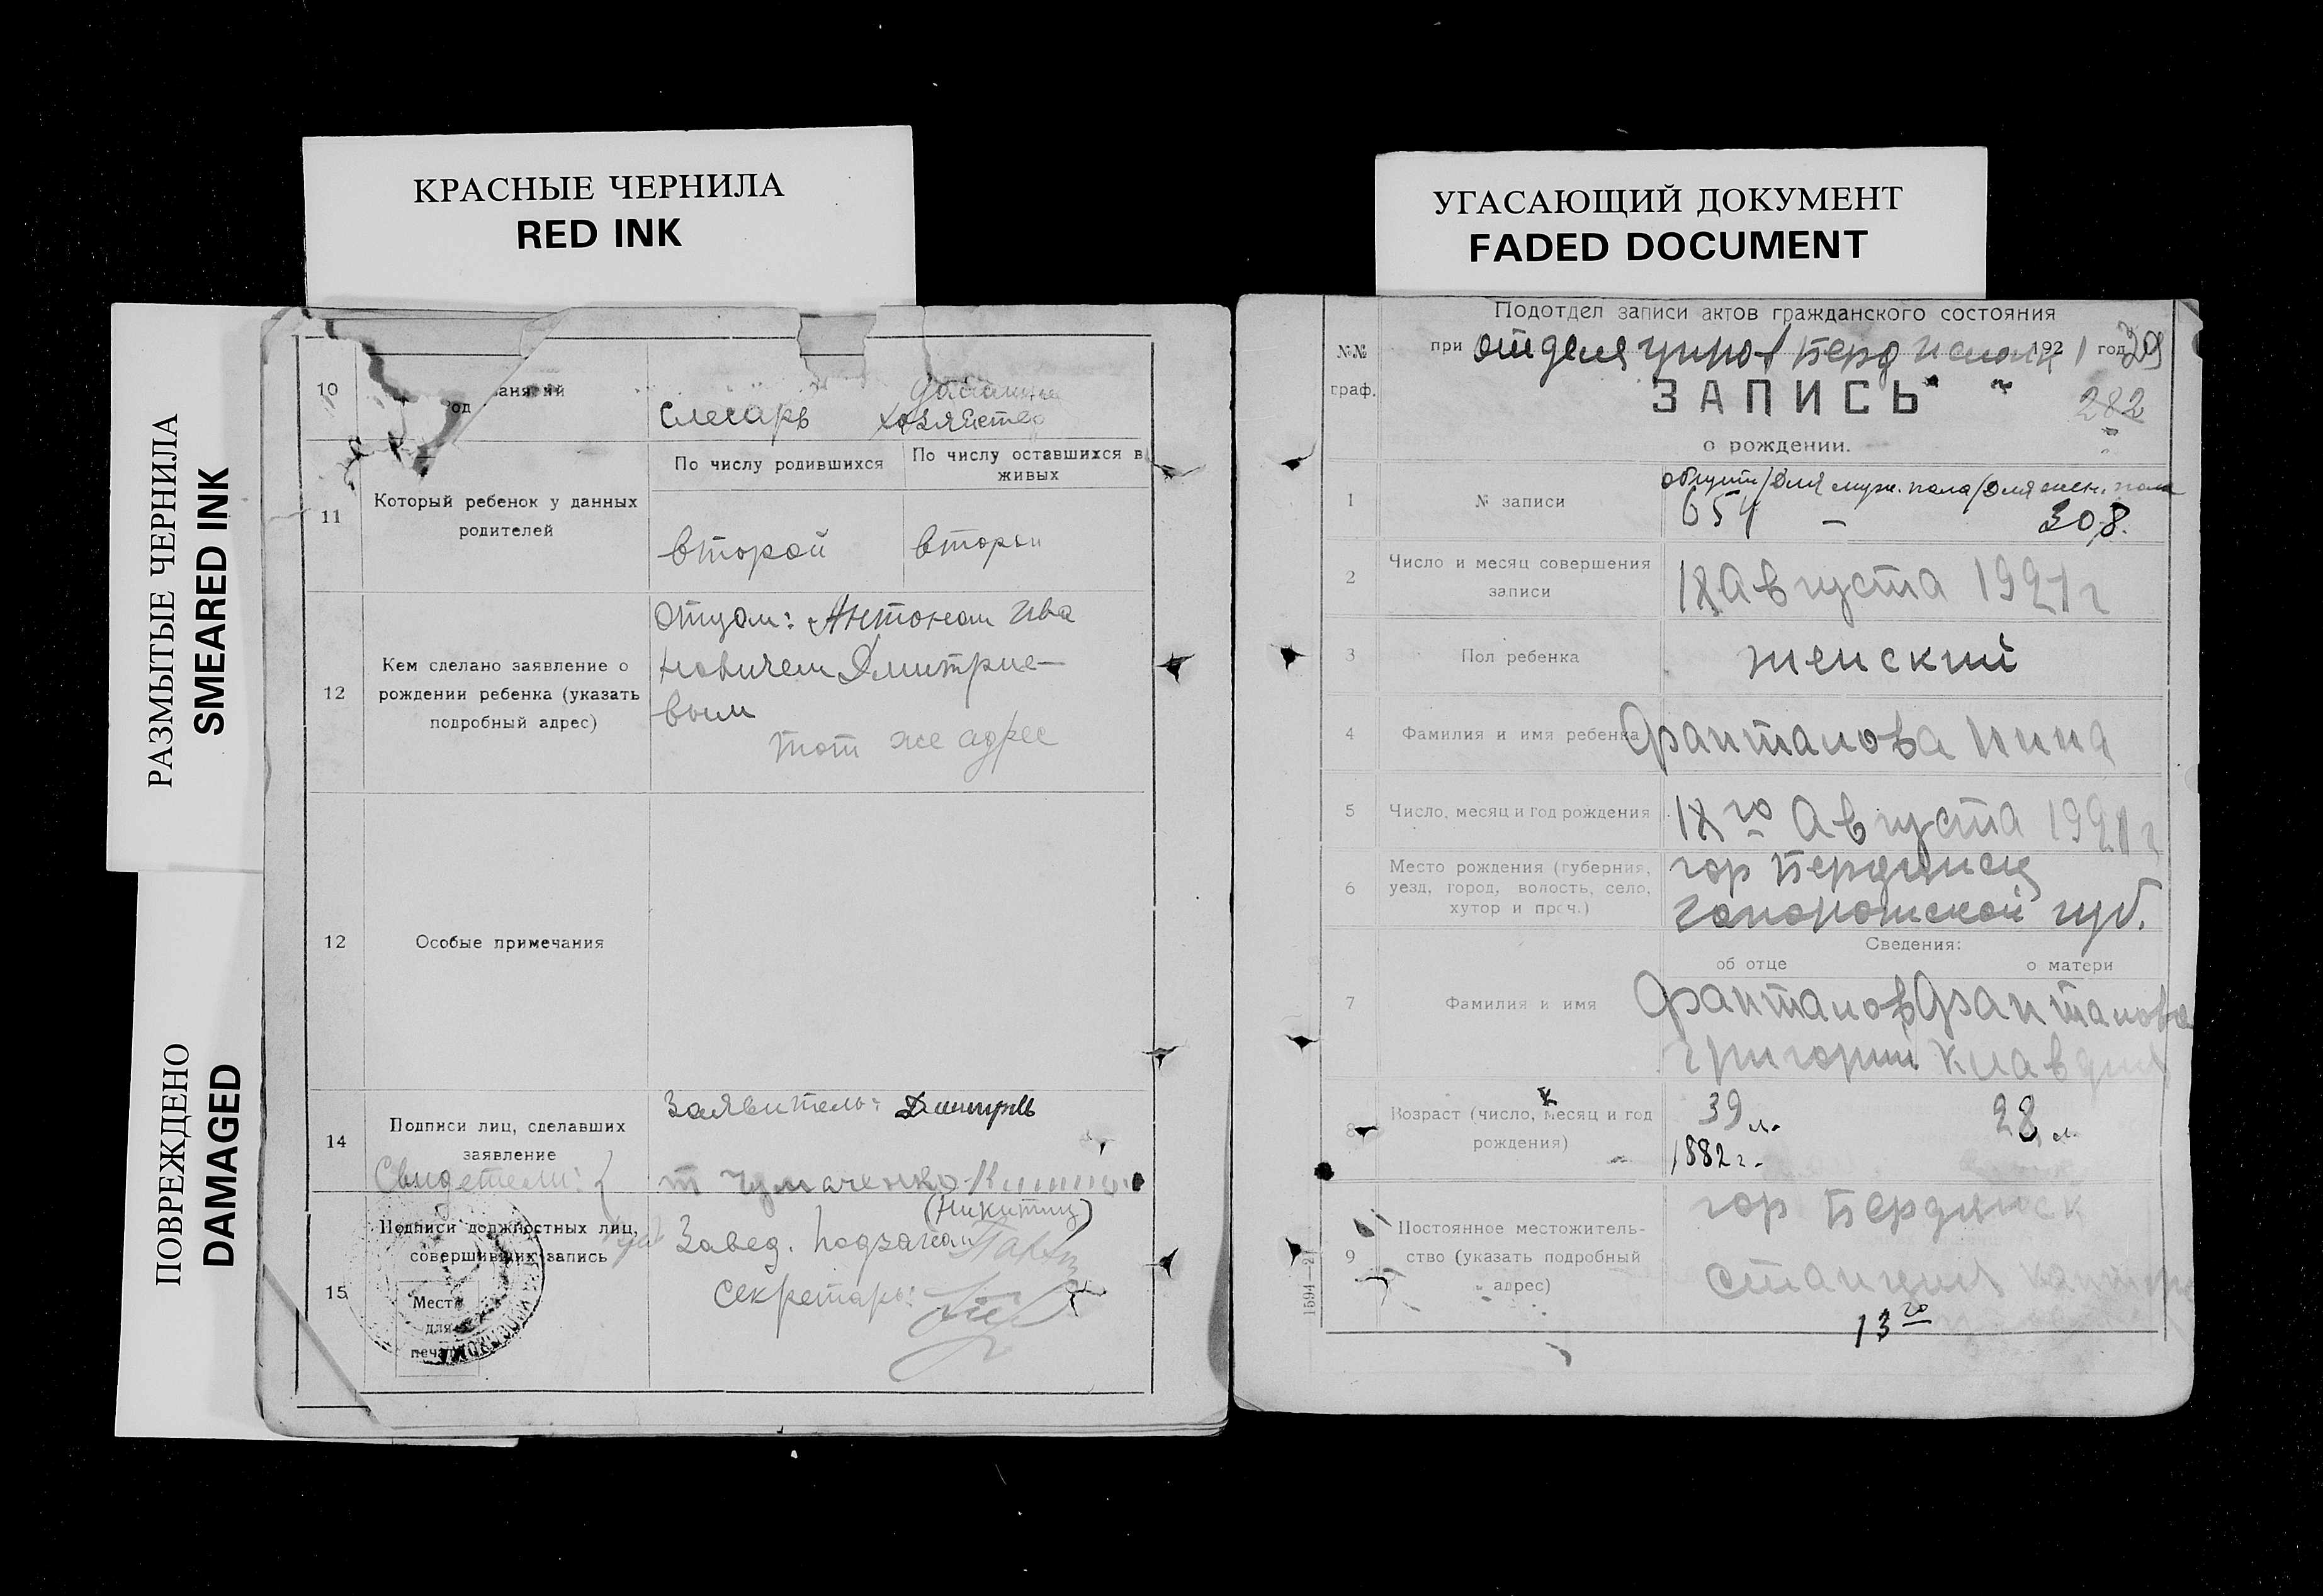 КРАСНЫЕ ЧЕРНИЛА
RED INK
РАЗМЫТЫЕ ЧЕРНИЛА
SMEARED INK
ПОВРЕЖДЕНО
DAMAGED
10
Род занятий
Слесарь
домашнее
хозяйство
11
Который ребенок у данных
родителей
По числу родившихся
По числу оставшихся в
живых
второй
второй
12
Кем сделано заявление о
рождении ребенка (указать
подробный адрес)
Отцом: Антоном Ива
новичем Дмитрие-
вым
тот же адрес
12
Особые примечания
14
Подписи лиц, сделавших
заявление
Свидетели:
Заявитель:
Чумаченко
(Никитиц)
15
Подписи должностных лиц,
совершивших запись
Завед. Подзагсом
Секретарь:
Место
для
печати
УГАСАЮЩИЙ ДОКУМЕНТ
FADED DOCUMENT
Подотдел записи актов гражданского состояния
№№
граф.
при отделе 1921 год
29
ЗАПИСЬ
282
о рождении.
1
№ записи
общий/для муж. пола/для жен. пола
654 — 308.
2
Число и месяц совершения
записи
18 Августа 1921 г
3
Пол ребенка
женский
4
Фамилия и имя ребенка
Фанталова Нина
5
Число, месяц и год рождения
18 го Августа 1921 г
6
Место рождения (губерния,
уезд, город, волость, село,
хутор и проч.)
гор Бердянск
Запорожской губ.
Сведения:
об отце
о матери
7
Фамилия и имя
Фанталов
Григорий
Фанталова
Клавдия
8
Возраст (число, месяц и год
рождения)
39 л.
1882 г.
28 л.
9
Постоянное местожитель-
ство (указать подробный
адрес)
гор Бердянск
станция
13 го
1594—21